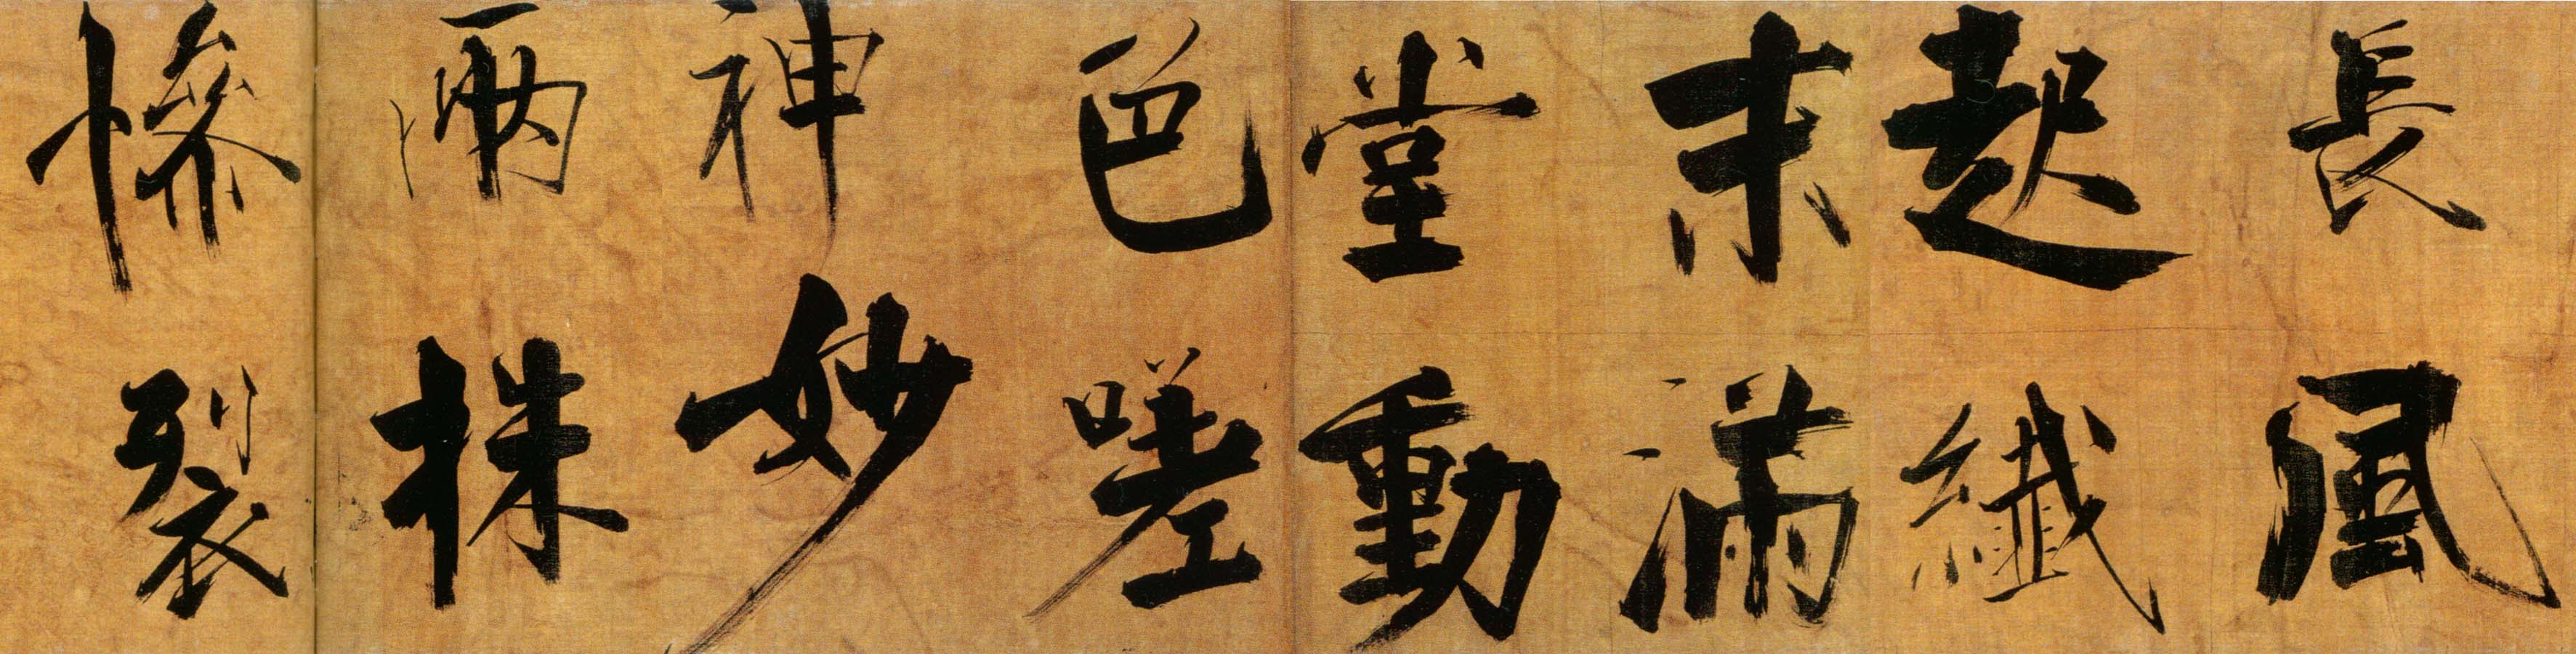 長風
起纖
末滿
堂動
色嗟
神妙
兩株
慘裂